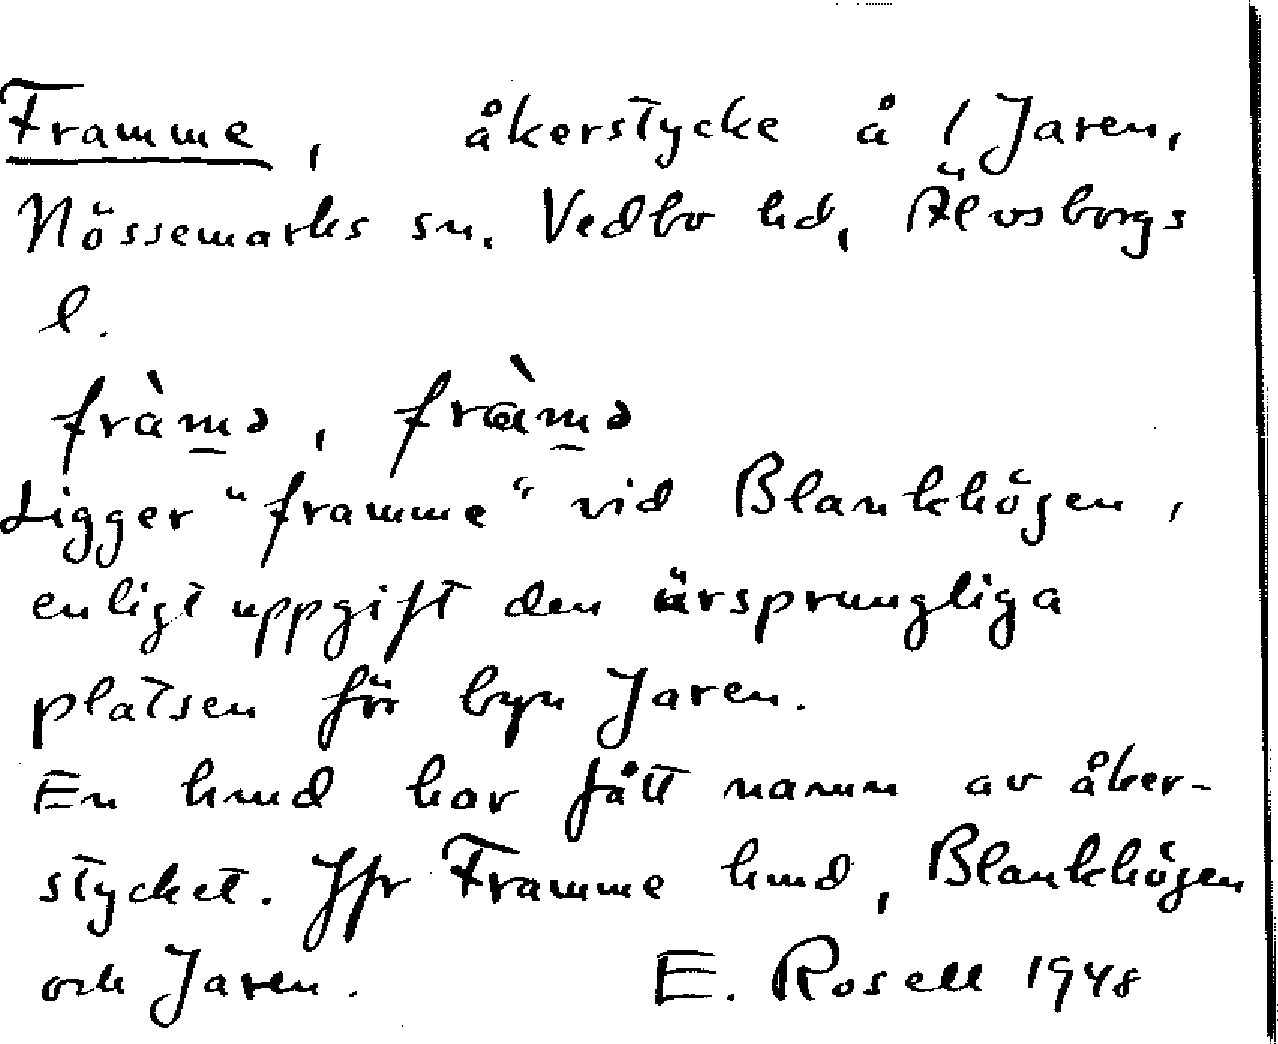 Framme, åkerstycke å 1 Jaren,
Nössemarks sn. Vedbo hd, Älvsborgs
l.
fràm̲ə, fràm̲ə
Ligger "framme" vid Blankhögen,
enligt uppgift den ursprungliga
platsen för byn Jaren.
En hmd har fått namn av åker-
stycket. Jfr Framme hmd, Blankhögen
och Jaren. E. Rosell 1948